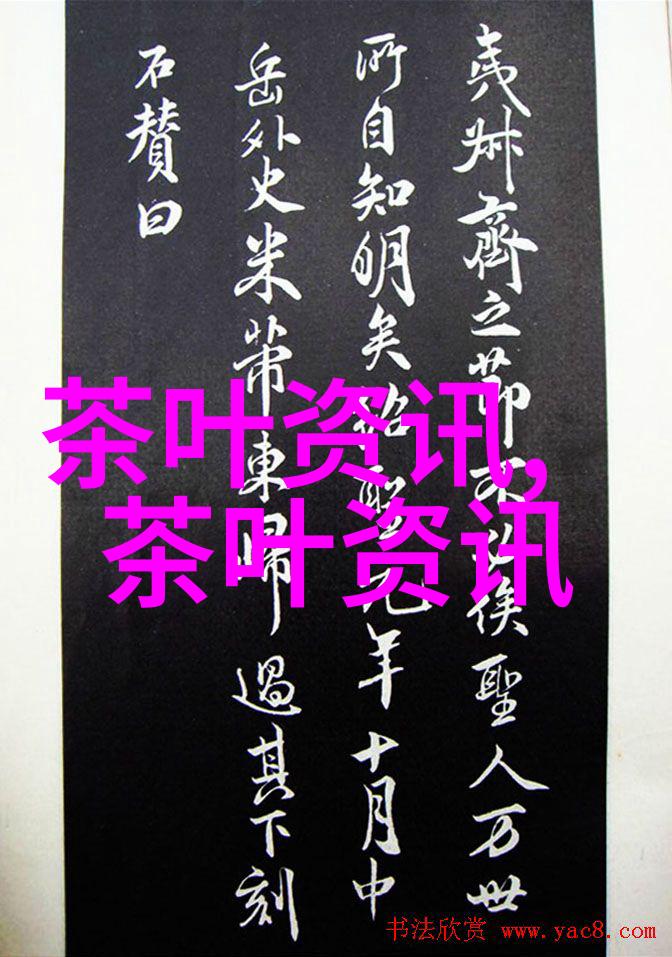 夷叔齊之節不必俟聖人万世
所自知明矣紹聖元年十月中
岳外史米芾東歸過其下刻
石賛曰
茶叶资讯,
茶叶资讯
书法欣赏 www.yac8.com